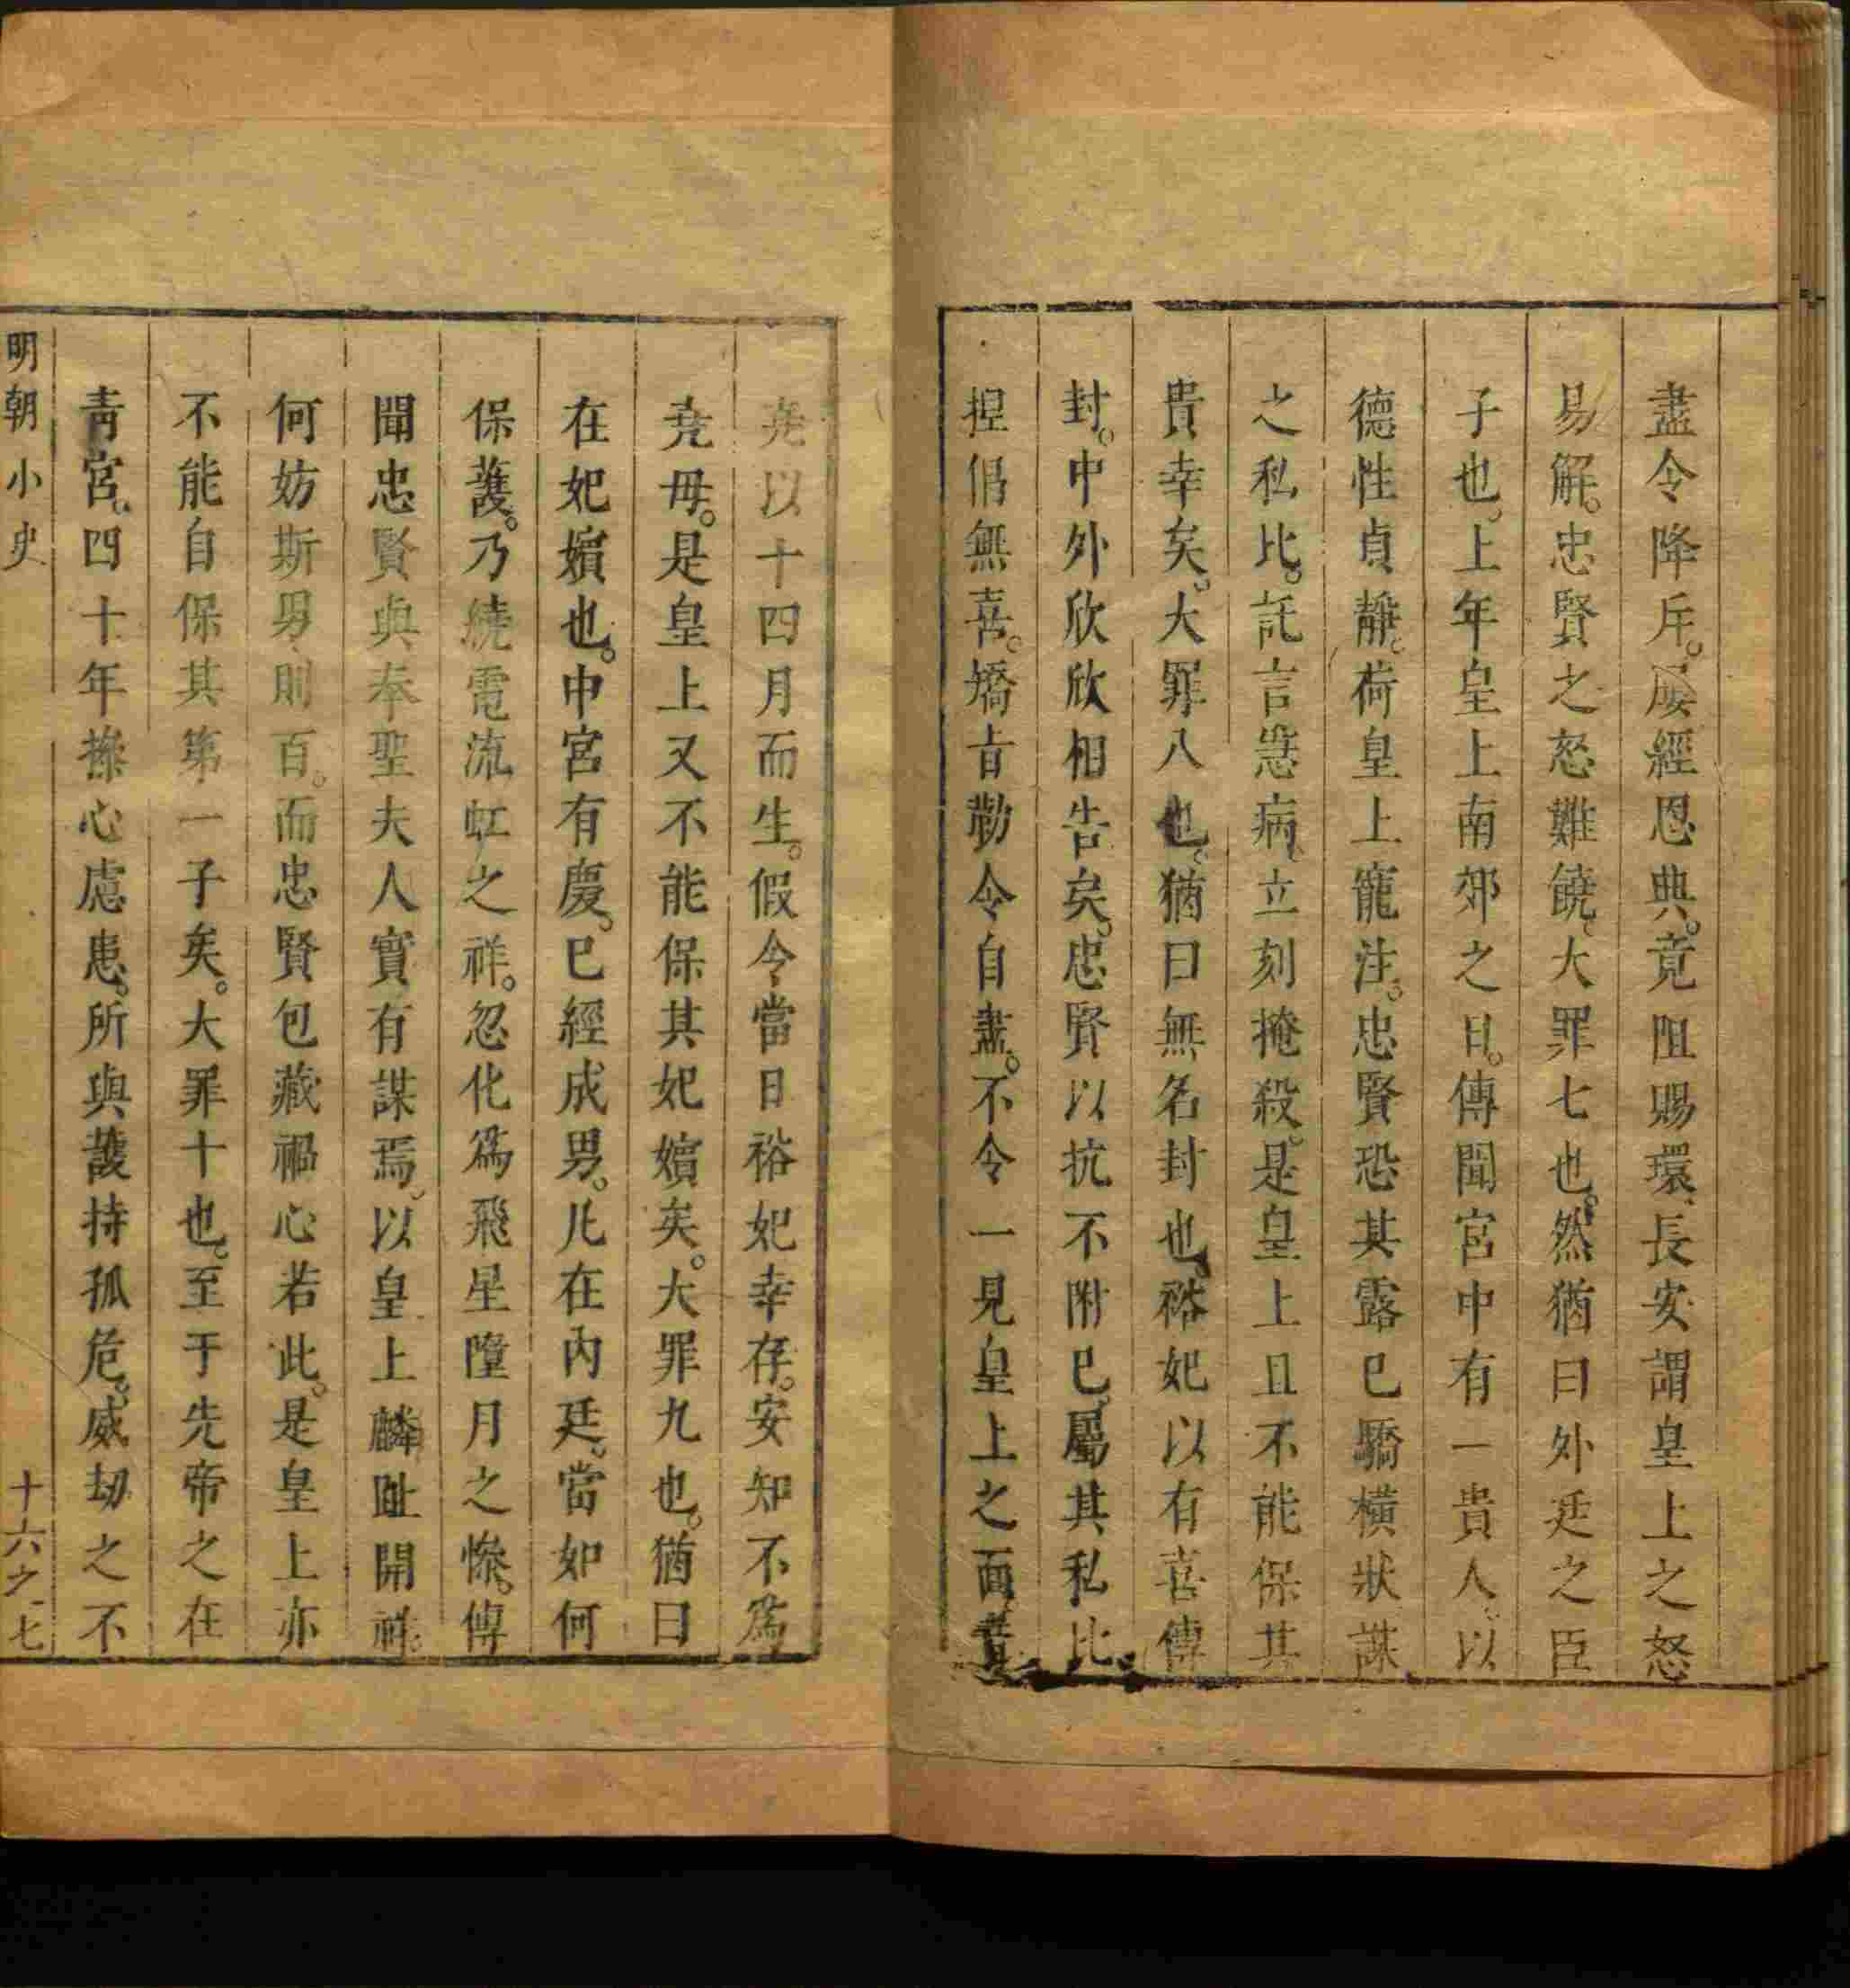 盡令降斥。屡經恩典。竟阻賜環、長安謂皇上之怒
易解。忠賢之怒難饒。大罪七也。然猶曰外廷之臣
子也。上年皇上南郊之日。傳聞宮中有一貴人。以
德性貞靜。荷皇上寵注。忠賢恐其露已驕橫狀謀
之私比。託言急病。立刻掩殺。是皇上且不能保其
貴幸矣。大罪八也。猶曰無名封也。裕妃以有喜傳
封。中外欣欣相告矣。忠賢以抗不附已。屬其私比。
捏倡無喜。矯旨勒令自盡。不令一見皇上之面。昔
堯以十四月而生。假令當日裕妃幸存。安知不爲
堯母。是皇上又不能保其妃嬪矣。大罪九也。猶曰
在妃嬪也。中宮有慶。已經成男。凡在內廷。當如何
保護。乃繞電流虹之祥。忽化爲飛星隕月之慘。傳
聞忠賢與奉聖夫人實有謀焉。以皇上麟趾開祥。
何妨斯男則百。而忠賢包藏禍心若此。是皇上亦
不能自保其第一子矣。大罪十也。至于先帝之在
靑宮。四十年操心慮患。所與護持孤危。威劫之不
明朝小史
十六之七